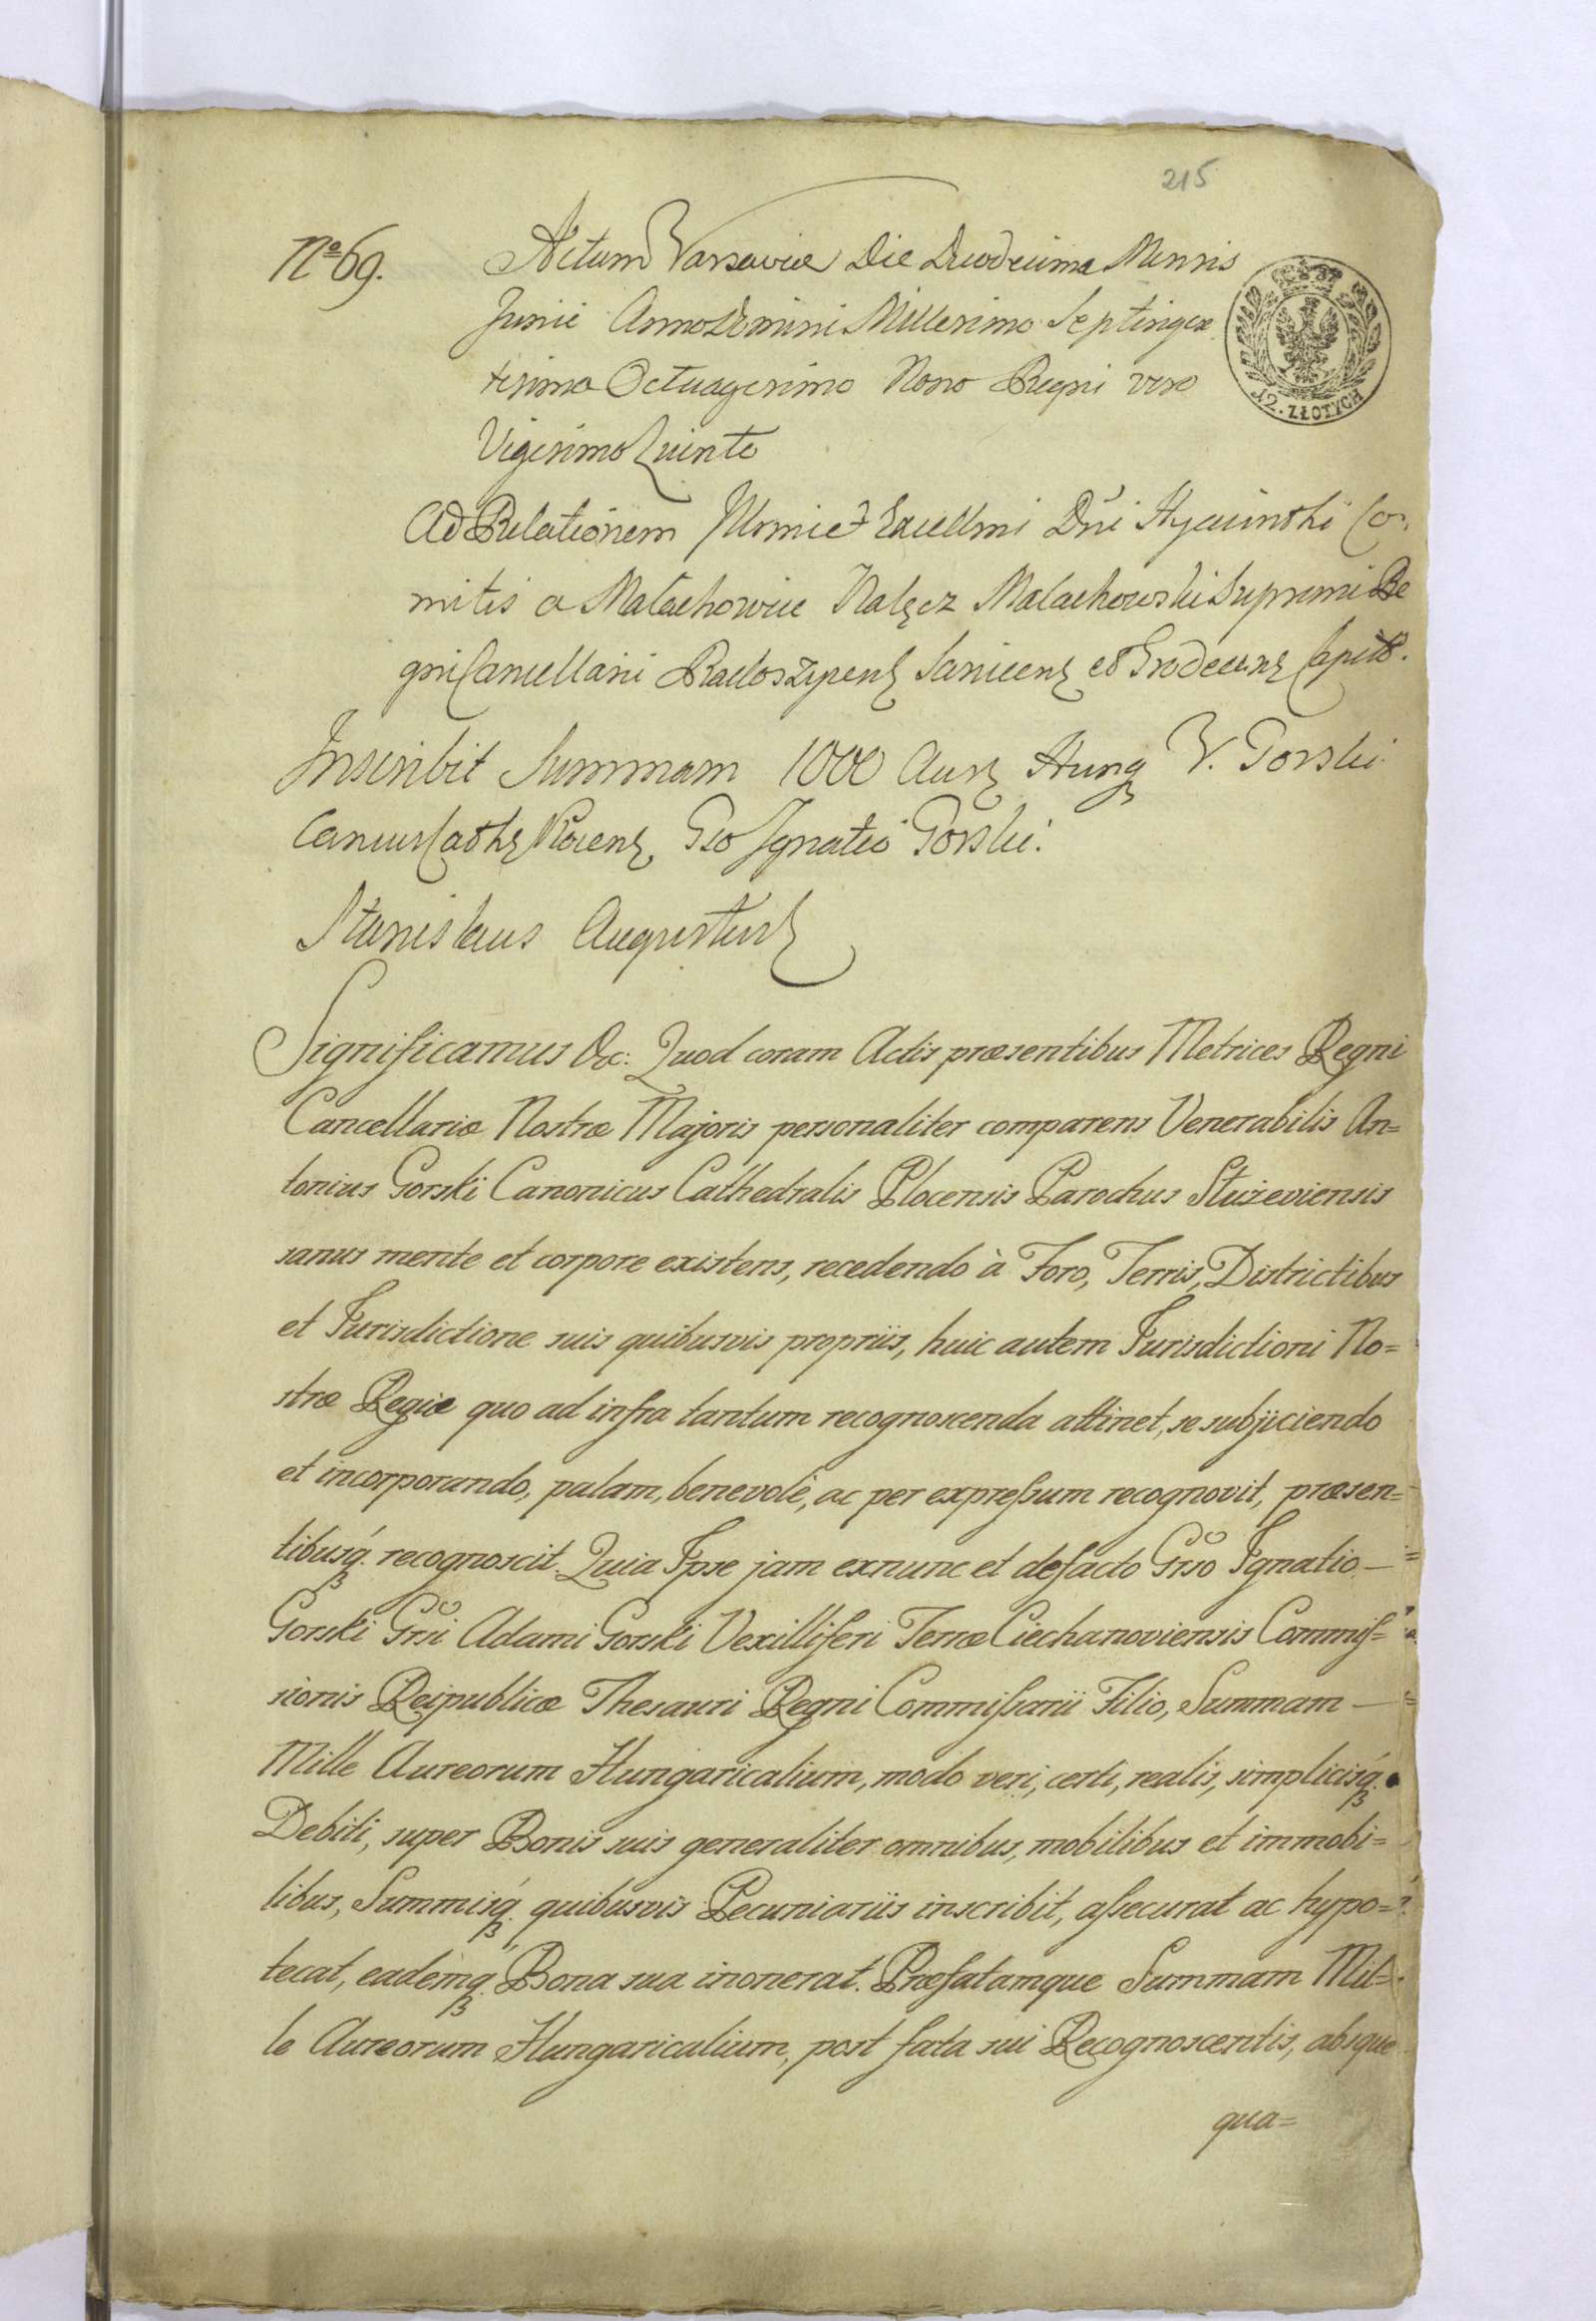 215
No 69.
Actum Varsaviæ Die Duodecima Mensis
Junii Anno Domini Millesimo Septingen
tesimo Octuagesimo Nono Regni vero
Vigesimo Quinto
12. ZŁOTYCH
Ad Relationem Illmi et Excellmi Dni Hyacinthi Co-
mitis a Małachowice Nałęcz Małachowski Supremi Re
gni Cancellarii Radoszycens Sanicens et Grodecens Capitt.
Inscribit Summam 1000 Aur Hung V. Gorski
Canus Cathe Plocens Gso Ignatio Gorski.
Stanislaus Augustus
Significamus &c: Quod coram Actis præsentibus Metrices Regni
Cancellariæ Nostræ Majoris personaliter comparens Venerabilis An=
tonius Gorski Canonicus Cathedralis Plocensis Parochus Stużeviensis
sanus mente et corpore existens, recedendo à Foro, Terris, Districtibus
et Jurisdictione suis quibusvis propriis, huic autem Jurisdictioni No=
stræ Regiæ quo ad infra tantum recognoscenda attinet, se subjiciendo
et incorporando, palam, benevolè, ac per expressum recognovit, præsen=
tibusq. recognoscit. Quia Ipse jam exnunc et defacto Grso Ignatio —
Gorski Grsi Adami Gorski Vexilliferi Terræ Ciechanoviensis Commis=
sionis Reipublicæ Thesauri Regni Commissarii Filio, Summam —
Mille Aureorum Hungaricalium, modo veri, certi, realis, simplicisq.
Debiti, super Bonis suis generaliter omnibus, mobilibus et immobi=
libus, Summisq. quibusvis Pecuniariis inscribit, assecurat ac hypo=
tecat, eademq. Bona sua inonerat. Præfatamque Summam Mil=
le Aureorum Hungaricalium, post fata sui Recognoscentis, absque
qua=